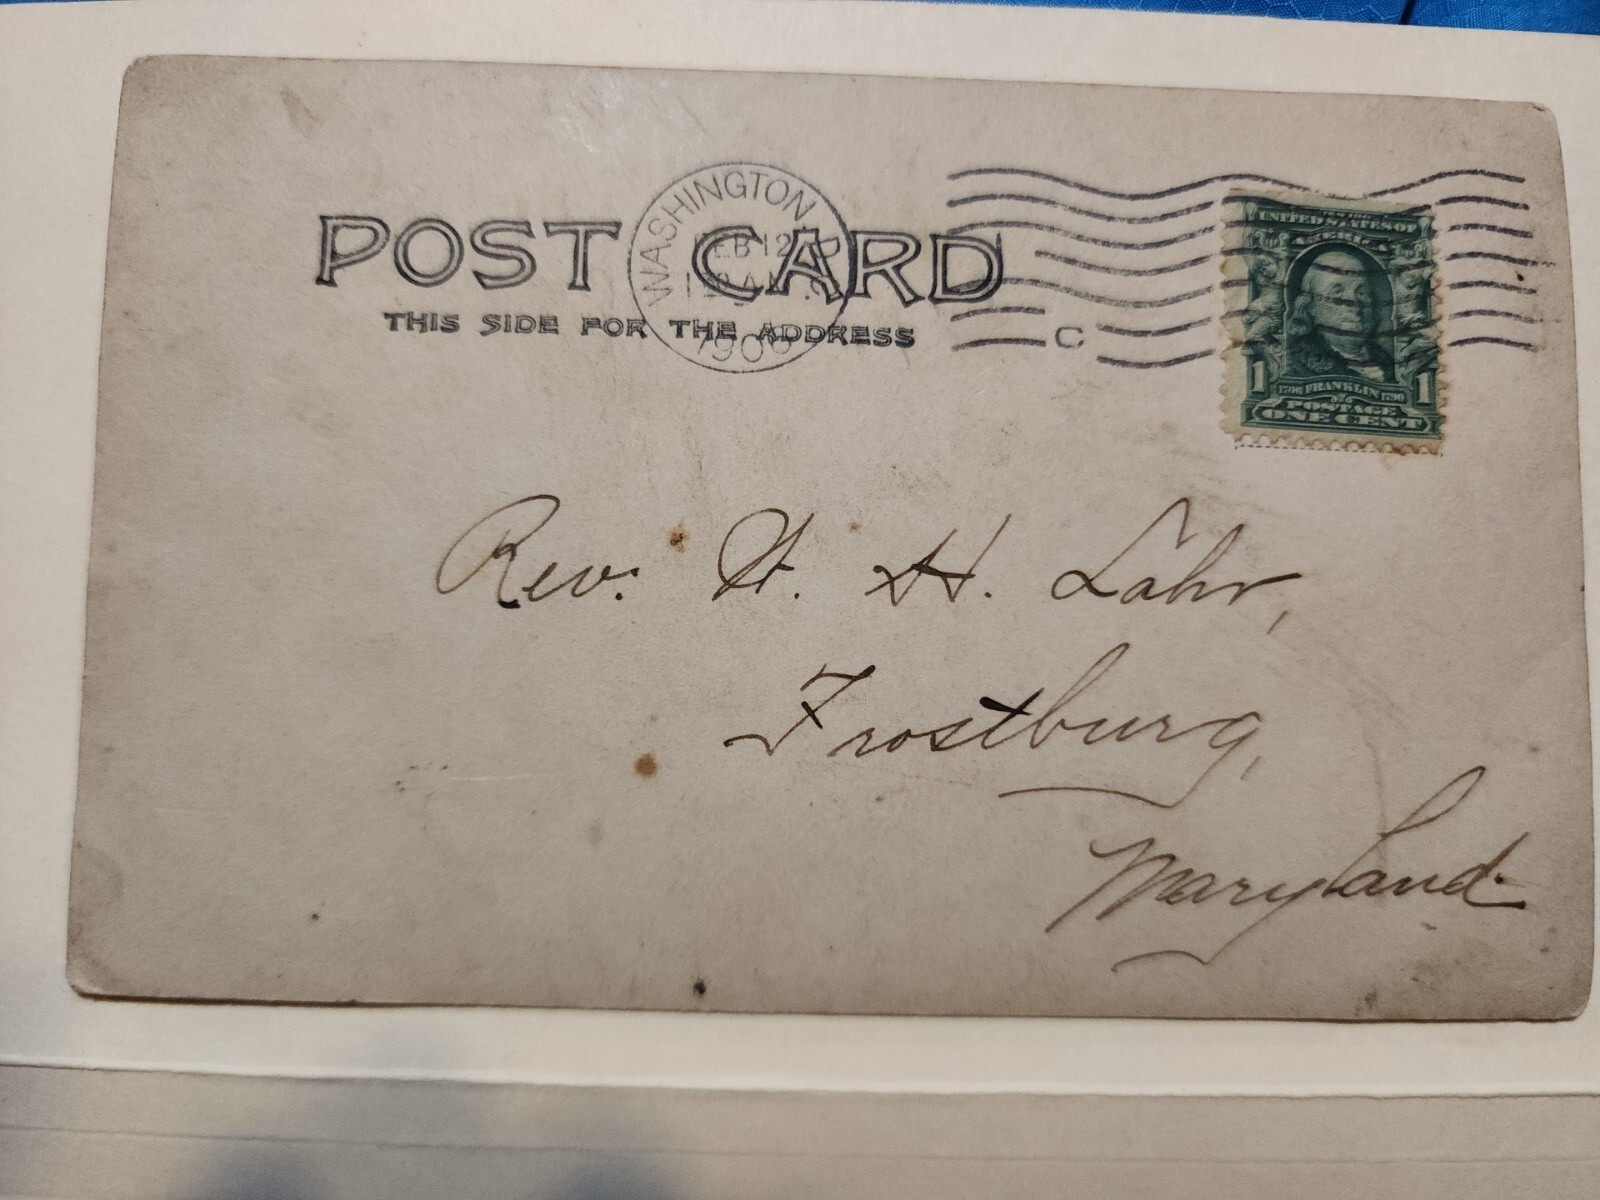 POST CARD
THIS SIDE FOR THE ADDRESS
WASHINGTON
FEB 12
1906
C
UNITED STATES OF
AMERICA
1 1706 FRANKLIN 1790 1
POSTAGE
ONE CENT
Rev. W. H. Lahr,
Frostburg,
Maryland.